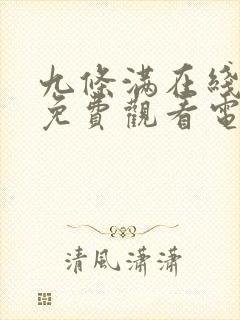 九條滿在綫
免費觀看電
清風瀟瀟